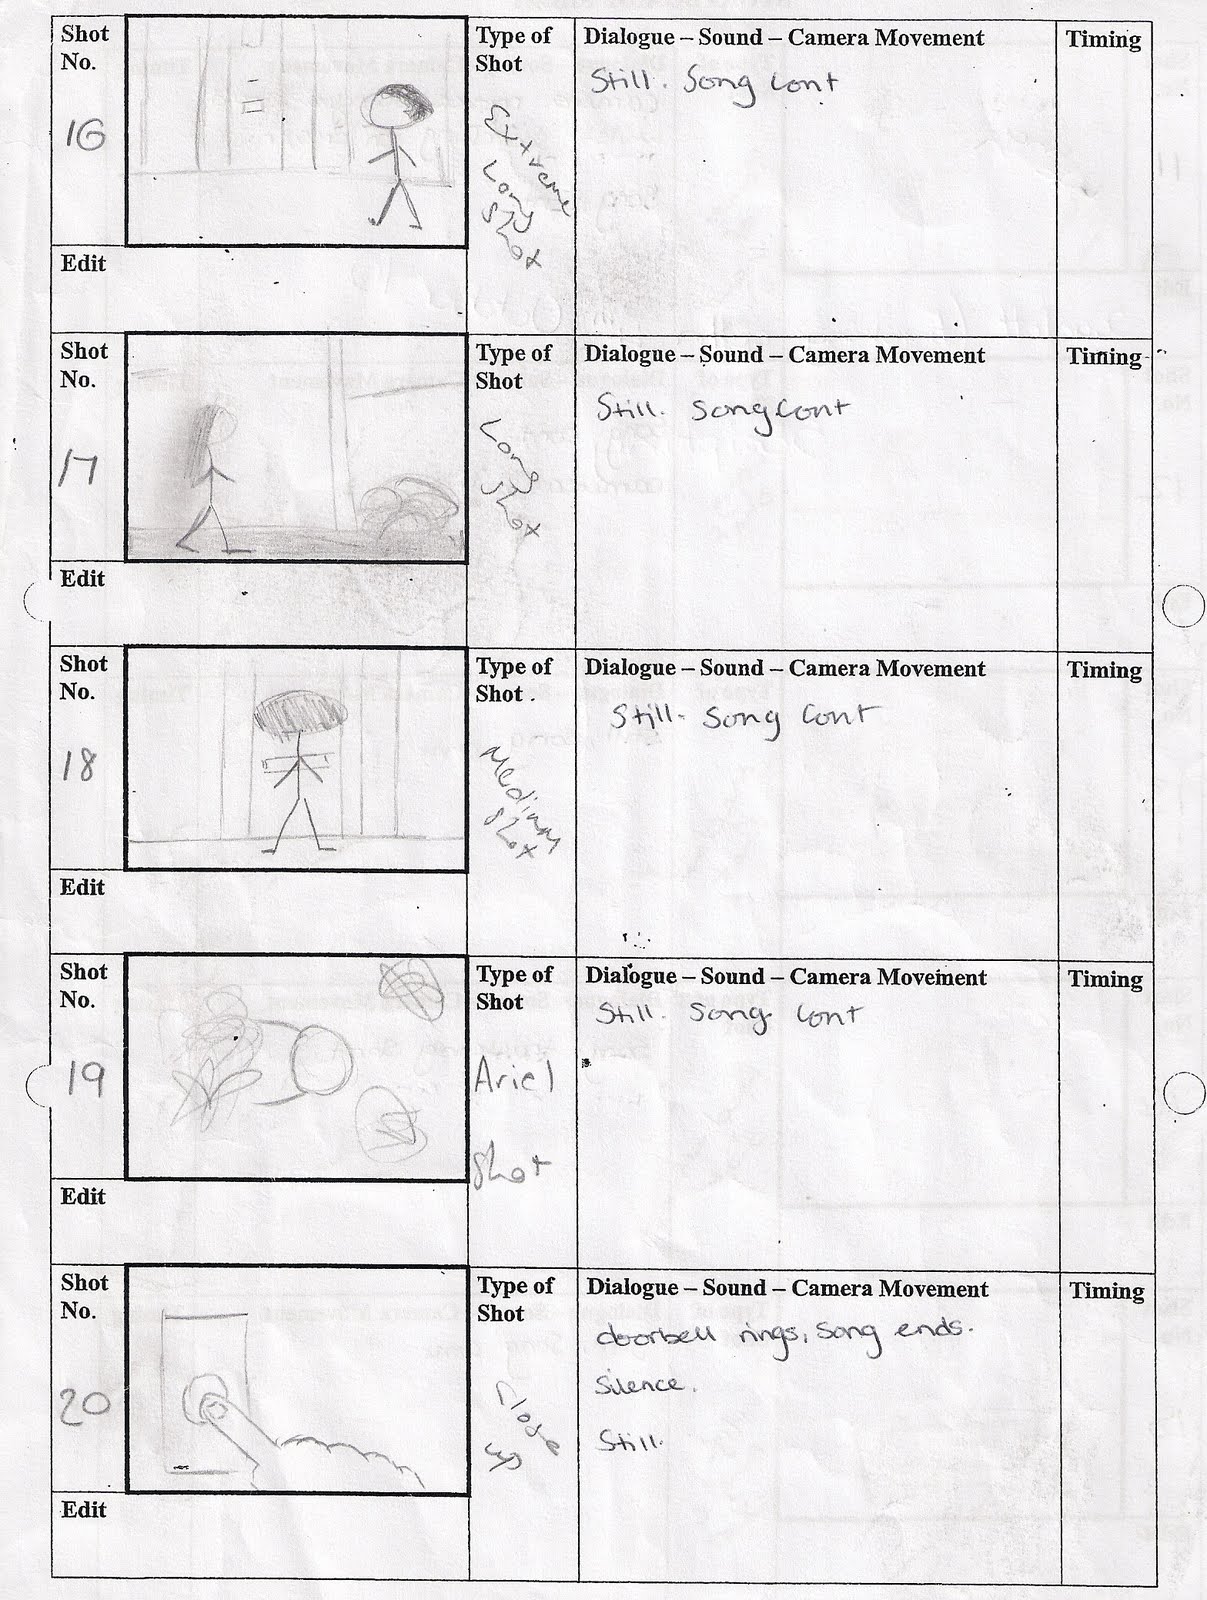 Shot No.
16
Type of Shot
Extreme Long Shot
Dialogue – Sound – Camera Movement
Still. Song cont
Timing
Edit
Shot No.
17
Type of Shot
Long Shot
Dialogue – Sound – Camera Movement
Still. Song cont
Timing
Edit
Shot No.
18
Type of Shot
Medium Shot
Dialogue – Sound – Camera Movement
Still. Song cont
Timing
Edit
Shot No.
19
Type of Shot
Ariel Shot
Dialogue – Sound – Camera Movement
Still. Song cont
Timing
Edit
Shot No.
20
Type of Shot
Close up
Dialogue – Sound – Camera Movement
doorbell rings, song ends.
Silence.
Still.
Timing
Edit